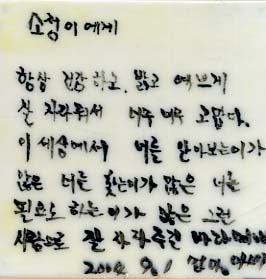 소정이에게
항상 건강하고, 밝고 예쁘게
잘 자라줘서 너무 너무 고맙다.
이 세상에서 너를 알아보는이가
많은 너를 찾는이가 많은 너를
필요로 하는이가 많은 그런
사람으로 잘 자라주길 바라며
2004. 9. 1 엄마,